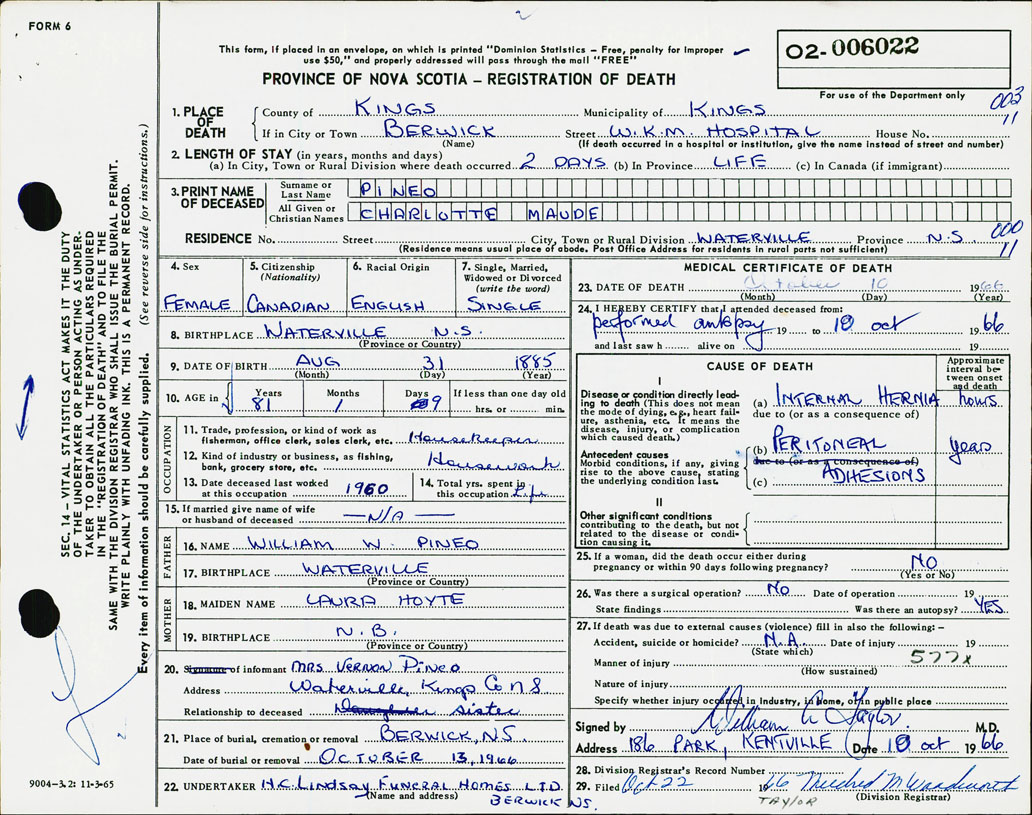 FORM 6
2
This form, if placed in an envelope, on which is printed "Dominion Statistics – Free, penalty for improper
use $50," and properly addressed will pass through the mail "FREE"
PROVINCE OF NOVA SCOTIA – REGISTRATION OF DEATH
02-006022
For use of the Department only
003
11
1. PLACE OF DEATH
County of KINGS Municipality of KINGS
If in City or Town BERWICK Street W.K.M. HOSPITAL House No.
(Name) (If death occurred in a hospital or institution, give the name instead of street and number)
2. LENGTH OF STAY (in years, months and days)
(a) In City, Town or Rural Division where death occurred 2 DAYS (b) In Province LIFE (c) In Canada (if immigrant)
3. PRINT NAME OF DECEASED
Surname or Last Name PINEO
All Given or Christian Names CHARLOTTE MAUDE
000
11
RESIDENCE No. Street City, Town or Rural Division WATERVILLE Province N.S.
(Residence means usual place of abode. Post Office Address for residents in rural parts not sufficient)
4. Sex
FEMALE
5. Citizenship (Nationality)
CANADIAN
6. Racial Origin
ENGLISH
7. Single, Married, Widowed or Divorced (write the word)
SINGLE
8. BIRTHPLACE WATERVILLE N.S.
(Province or Country)
9. DATE OF BIRTH AUG 31 1885
(Month) (Day) (Year)
10. AGE in Years Months Days If less than one day old
81 1 9 hrs. or min.
OCCUPATION
11. Trade, profession, or kind of work as
fisherman, office clerk, sales clerk, etc. Housekeeper
12. Kind of industry or business, as fishing,
bank, grocery store, etc. Housework
13. Date deceased last worked
at this occupation 1960
14. Total yrs. spent in
this occupation Life
15. If married give name of wife
or husband of deceased —N/A—
FATHER
16. NAME WILLIAM W. PINEO
17. BIRTHPLACE WATERVILLE
(Province or Country)
MOTHER
18. MAIDEN NAME LAURA HOYTE
19. BIRTHPLACE N.B.
(Province or Country)
20. Signature of informant MRS VERNON PINEO
Address Waterville, Kings Co N S
Relationship to deceased Daughter sister
21. Place of burial, cremation or removal BERWICK, N.S.
Date of burial or removal OCTOBER 13, 1966
22. UNDERTAKER H.C. LINDSAY FUNERAL HOMES LTD.
(Name and address) BERWICK NS.
MEDICAL CERTIFICATE OF DEATH
23. DATE OF DEATH October 10 1966
(Month) (Day) (Year)
24. I HEREBY CERTIFY that I attended deceased from:
performed autopsy 19 to 10 oct 1966
and last saw h alive on 19
CAUSE OF DEATH
Approximate interval between onset and death
I
Disease or condition directly leading to death (This does not mean the mode of dying, e.g., heart failure, asthenia, etc. It means the disease, injury, or complication which caused death.)
(a) INTERNAL HERNIA hours
due to (or as a consequence of)
Antecedent causes
Morbid conditions, if any, giving rise to the above cause, stating the underlying condition last.
(b) PERITONEAL years
due to (or as a consequence of)
(c) ADHESIONS
II
Other significant conditions
contributing to the death, but not related to the disease or condition causing it.
25. If a woman, did the death occur either during
pregnancy or within 90 days following pregnancy? NO
(Yes or No)
26. Was there a surgical operation? No Date of operation 19
State findings Was there an autopsy? YES
27. If death was due to external causes (violence) fill in also the following:–
Accident, suicide or homicide? N.A. Date of injury 19
(State which) 577X
Manner of injury
(How sustained)
Nature of injury
Specify whether injury occurred in Industry, in home, or in public place
Signed by William A Taylor M.D.
Address 186 PARK, KENTVILLE Date 10 oct 1966
28. Division Registrar's Record Number
29. Filed Oct 22 1966 Mildred M Woodworth
TAYLOR (Division Registrar)
SEC. 14 – VITAL STATISTICS ACT MAKES IT THE DUTY
OF THE UNDERTAKER OR PERSON ACTING AS UNDER-
TAKER TO OBTAIN ALL THE PARTICULARS REQUIRED
IN THE "REGISTRATION OF DEATH" AND TO FILE THE
SAME WITH THE DIVISION REGISTRAR WHO SHALL ISSUE THE BURIAL PERMIT.
WRITE PLAINLY WITH UNFADING INK. THIS IS A PERMANENT RECORD.
Every item of information should be carefully supplied. (See reverse side for instructions.)
9004-3.2: 11-3-65